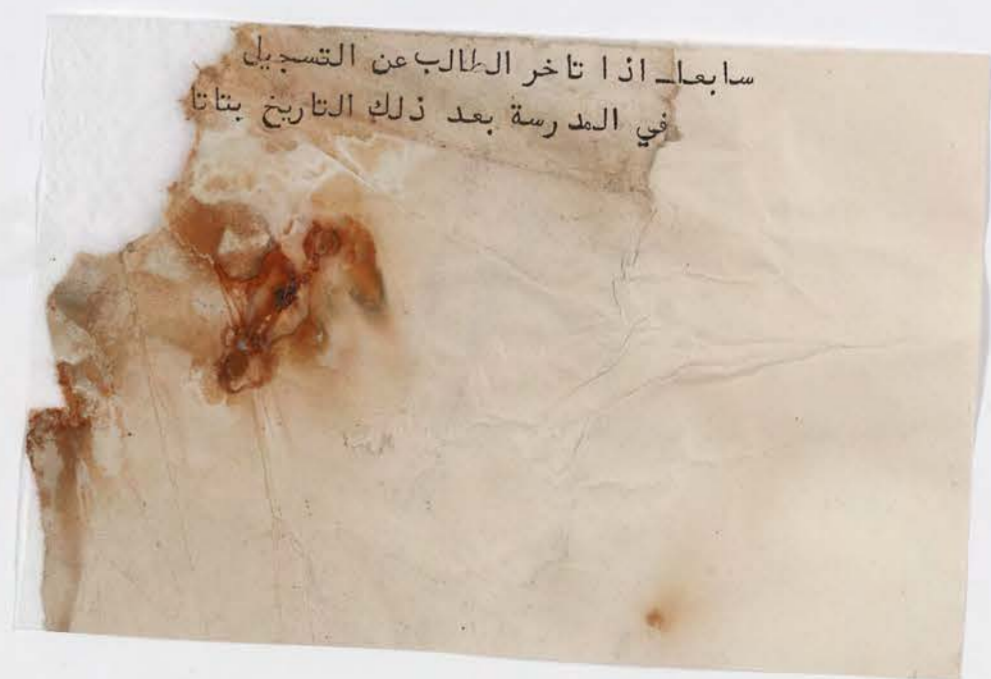 سابعاـ اذا تاخر الطالب عن التسجيل
في المدرسة بعد ذلك التاريخ بتاتا